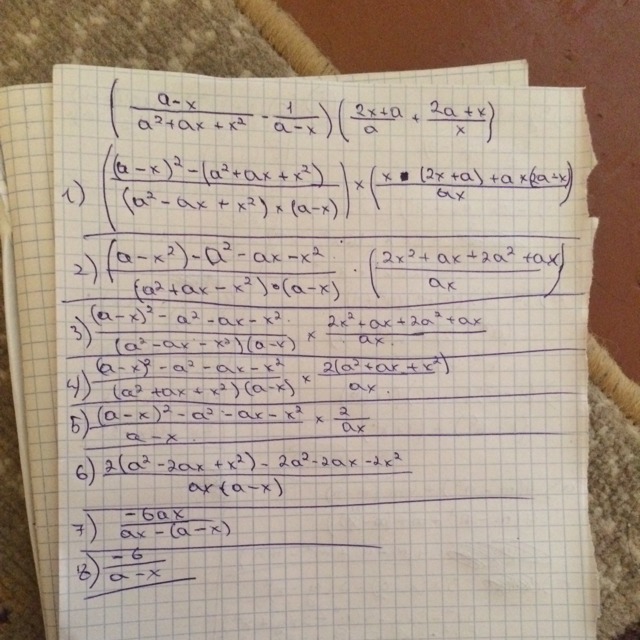 ( (a-x)/(a²+ax+x²) - 1/(a-x) ) ( (2x+a)/a + (2a+x)/x )
1) ( ((a-x)² - (a²+ax+x²))/((a²-ax+x²)×(a-x)) ) × ( (x·(2x+a)+a×(2a+x))/ax )
2) ( ((a-x²)-a²-ax-x²)/((a²+ax-x²)·(a-x)) · ( (2x²+ax+2a²+ax)/ax )
3) ((a-x)²-a²-ax-x²)/((a²-ax-x²)(a-x)) × (2x²+ax+2a²+ax)/ax
4) ((a-x)²-a²-ax-x²)/((a²+ax+x²)(a-x)) × (2(a²+ax+x²))/ax
5) ((a-x)²-a²-ax-x²)/(a-x) × 2/ax
6) (2(a²-2ax+x²)-2a²-2ax-2x²)/(ax×(a-x))
7) (-6ax)/(ax-(a-x))
8) (-6)/(a-x)